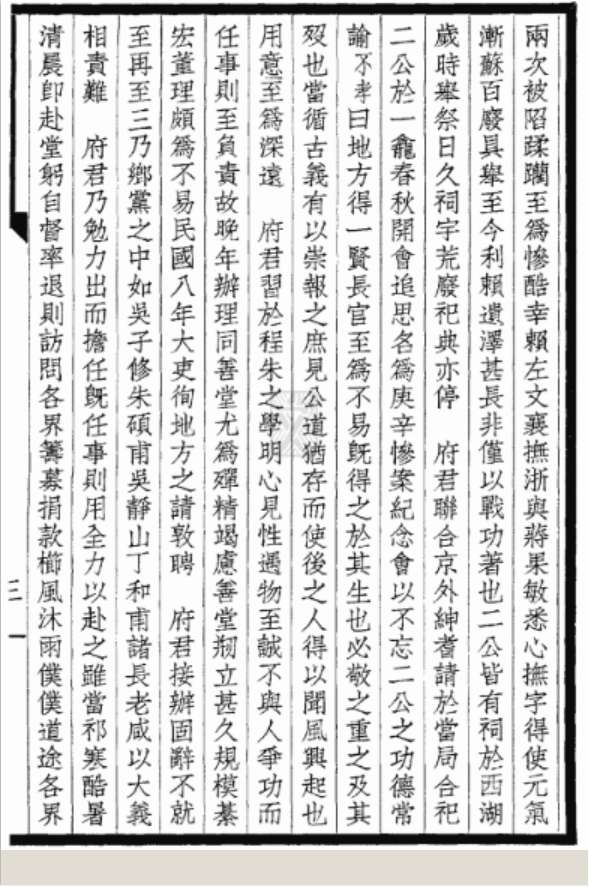 兩次被陷蹂躪至爲慘酷幸賴左文襄撫浙與蔣果敏悉心撫字得使元氣
漸蘇百廢具舉至今利賴遺澤甚長非僅以戰功著也二公皆有祠於西湖
歲時舉祭日久祠宇荒廢祀典亦停　府君聯合京外紳耆請於當局合祀
二公於一龕春秋開會追思名爲庚辛慘案紀念會以不忘二公之功德常
諭不孝曰地方得一賢長官至爲不易旣得之於其生也必敬之重之及其
歿也當循古義有以崇報之庶見公道猶存而使後之人得以聞風興起也
用意至爲深遠　府君習於程朱之學明心見性遇物至誠不與人爭功而
任事則至負責故晚年辦理同善堂尤爲殫精竭慮善堂剏立甚久規模綦
宏董理頗爲不易民國八年大吏徇地方之請敦聘　府君接辦固辭不就
至再至三乃鄉黨之中如吳子修朱碩甫吳靜山丁和甫諸長老咸以大義
相責難　府君乃勉力出而擔任旣任事則用全力以赴之雖當祁寒酷暑
清晨卽赴堂躬自督率退則訪問各界籌募捐款櫛風沐雨僕僕道途各界
三一